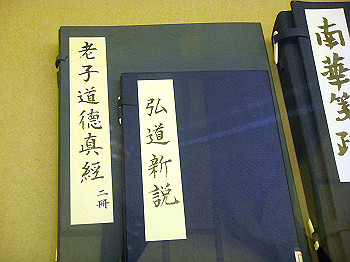 老子道德真經 二冊
弘道新説
南華